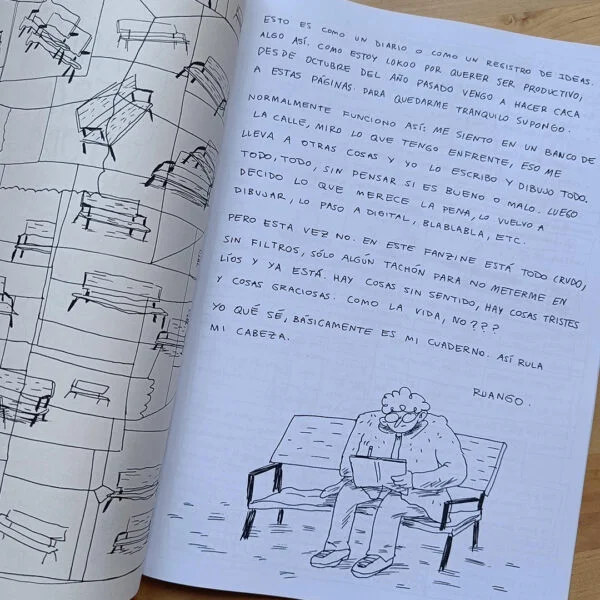 ESTO ES COMO UN DIARIO O COMO UN REGISTRO DE IDEAS.
ALGO ASÍ. COMO ESTOY LOKOO POR QUERER SER PRODUCTIVO,
DESDE OCTUBRE DEL AÑO PASADO VENGO A HACER CACA
A ESTAS PÁGINAS. PARA QUEDARME TRANQUILO SUPONGO.
NORMALMENTE FUNCIONO ASÍ: ME SIENTO EN UN BANCO DE
LA CALLE, MIRO LO QUE TENGO ENFRENTE, ESO ME
LLEVA A OTRAS COSAS Y YO LO ESCRIBO Y DIBUJO TODO.
TODO, TODO, SIN PENSAR SI ES BUENO O MALO. LUEGO
DECIDO LO QUE MERECE LA PENA, LO VUELVO A
DIBUJAR, LO PASO A DIGITAL, BLABLABLA, ETC.
PERO ESTA VEZ NO. EN ESTE FANZINE ESTÁ TODO CRUDO,
SIN FILTROS, SÓLO ALGÚN TACHÓN PARA NO METERME EN
LÍOS Y YA ESTÁ. HAY COSAS SIN SENTIDO, HAY COSAS TRISTES
Y COSAS GRACIOSAS. COMO LA VIDA, NO???
YO QUÉ SÉ, BÁSICAMENTE ES MI CUADERNO. ASÍ RULA
MI CABEZA.
RUANGO.